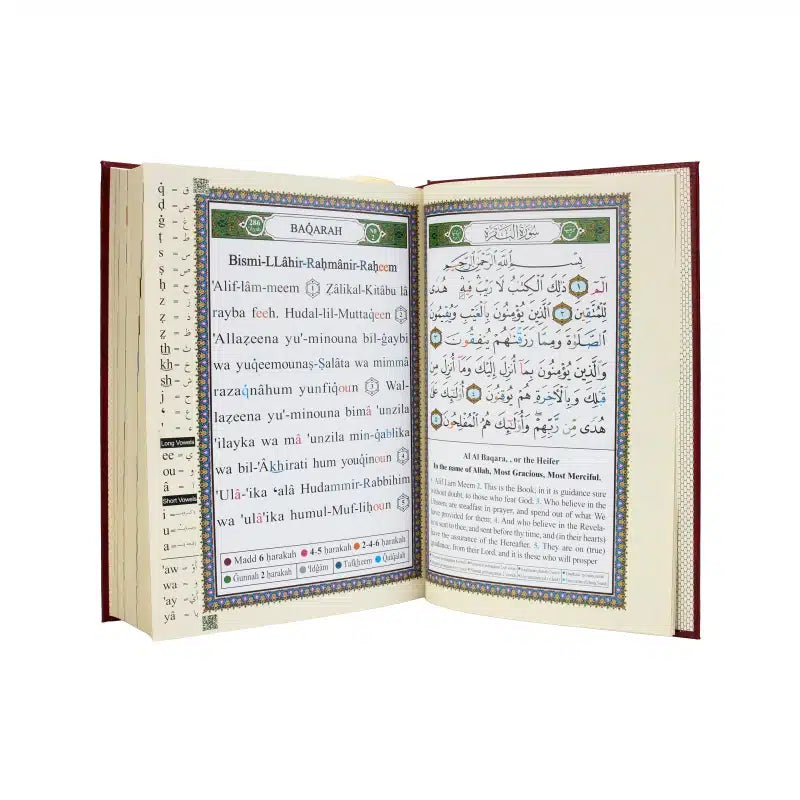 q̇ – ق
ḍ – ض
ġ – غ
ṭ – ط
ṣ – ص
ḥ – ح
z – ز
ẓ – ظ
z̧ – ذ
th – ث
kh – خ
sh – ش
j – ج
‘ – ع
' – ء
Long Vowels
ee –
ou –
â –
Short Vowels
i –
u –
a –
'aw –
wa – وَ
'ay –
yâ – يا
286
BAQ̇ARAH
Bismi-LLâhir-Raḥmânir-Raḥeem
'Alif-lâm-meem 1 Z̧âlikal-Kitâbu lâ
rayba feeh. Hudal-lil-Muttaq̇een 2
'Allaz̧eena yu'-minouna bil-ġaybi
wa yuq̇eemounaṣ-Ṣalâta wa mimmâ
razaq̇nâhum yunfiq̇oun 3 Wal-
laz̧eena yu'-minouna bimâ 'unzila
'ilayka wa mâ 'unzila min-q̇ablika
wa bil-'Âkhirati hum youq̇inoun 4
'Ulâ-'ika ‘alâ Hudammir-Rabbihim
wa 'ulâ'ika humul-Muf-liḥoun 5
Madd 6 ḥarakah 4-5 ḥarakah 2-4-6 ḥarakah
Gunnah 2 ḥarakah 'Idġâm Tafkheem Q̇alq̇alah
سُورَةُ البَقَرَة
بِسْمِ اللَّهِ الرَّحْمَٰنِ الرَّحِيمِ
الٓمٓ ١ ذَٰلِكَ ٱلْكِتَٰبُ لَا رَيْبَ فِيهِ هُدًى
لِّلْمُتَّقِينَ ٢ ٱلَّذِينَ يُؤْمِنُونَ بِٱلْغَيْبِ وَيُقِيمُونَ
ٱلصَّلَوٰةَ وَمِمَّا رَزَقْنَٰهُمْ يُنفِقُونَ ٣
وَٱلَّذِينَ يُؤْمِنُونَ بِمَآ أُنزِلَ إِلَيْكَ وَمَآ أُنزِلَ مِن
قَبْلِكَ وَبِٱلْءَاخِرَةِ هُمْ يُوقِنُونَ ٤ أُو۟لَٰٓئِكَ عَلَىٰ
هُدًى مِّن رَّبِّهِمْ وَأُو۟لَٰٓئِكَ هُمُ ٱلْمُفْلِحُونَ ٥
Al Al Baqara, , or the Heifer
In the name of Allah, Most Gracious, Most Merciful.
1. Alif Lam Meem 2. This is the Book; in it is guidance sure
without doubt, to those who fear God; 3. Who believe in the
Unseen, are steadfast in prayer, and spend out of what We
have provided for them; 4. And who believe in the Revela-
sent to thee, and sent before thy time, and (in their hearts)
have the assurance of the Hereafter. 5. They are on (true)
guidance, from their Lord, and it is these who will prosper